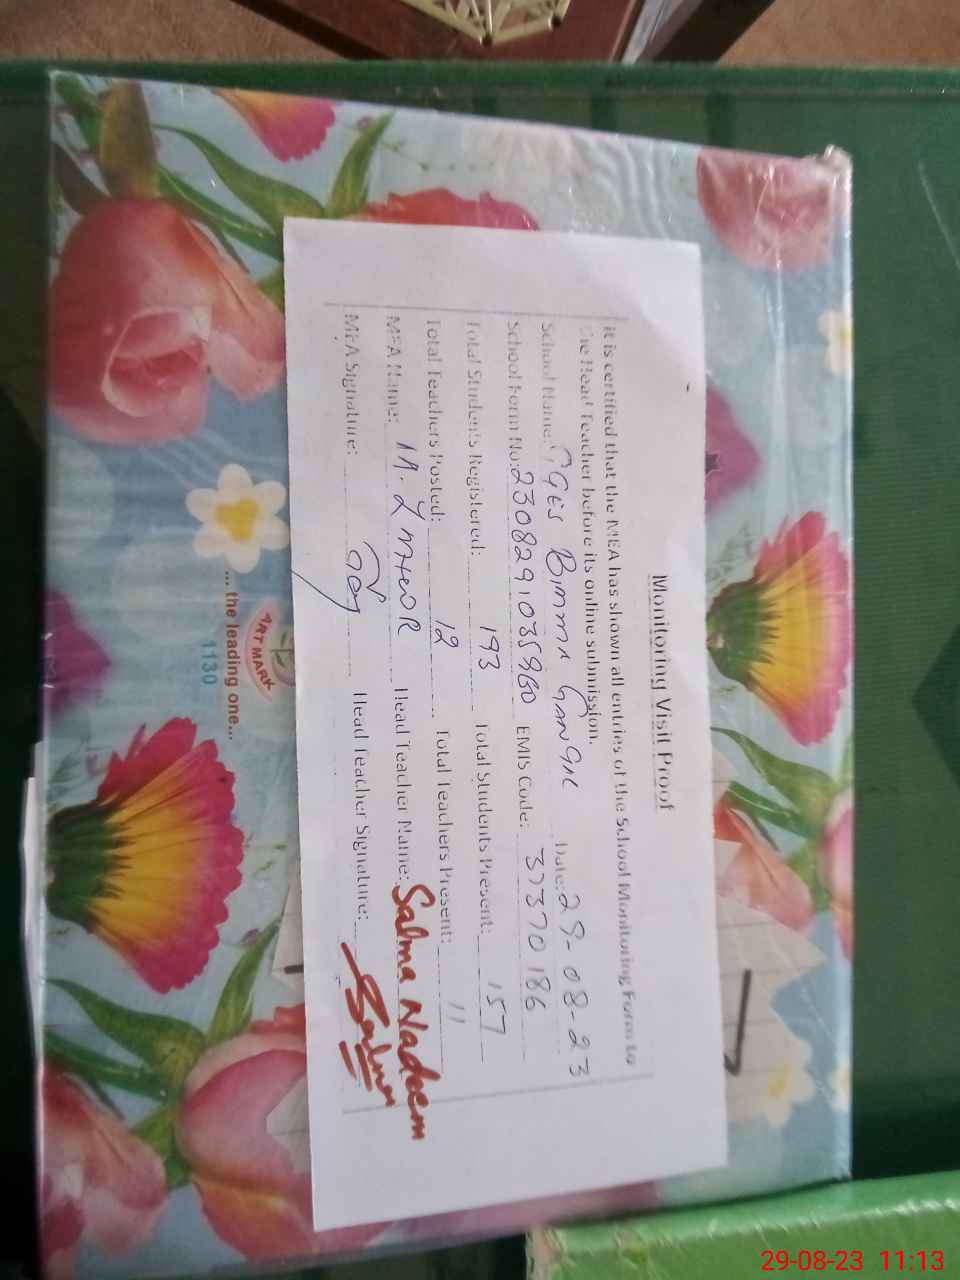 Monitoring Visit Proof
it is certified that the MEA has shown all entries of the School Monitoring Form to
the Head Teacher before its online submission.
School Name: GGES Bimma Date: 29-08-23
School Form No: 23082910359 EMIS Code: 37370186
Total Students Registered: 193 Total Students Present: 157
Total Teachers Posted: 12 Total Teachers Present: 11
MEA Name: Head Teacher Name: Salma Nadeem
MEA Signature: Head Teacher Signature: Salma
ART MARK
... the leading one...
1130
29-08-23 11:13